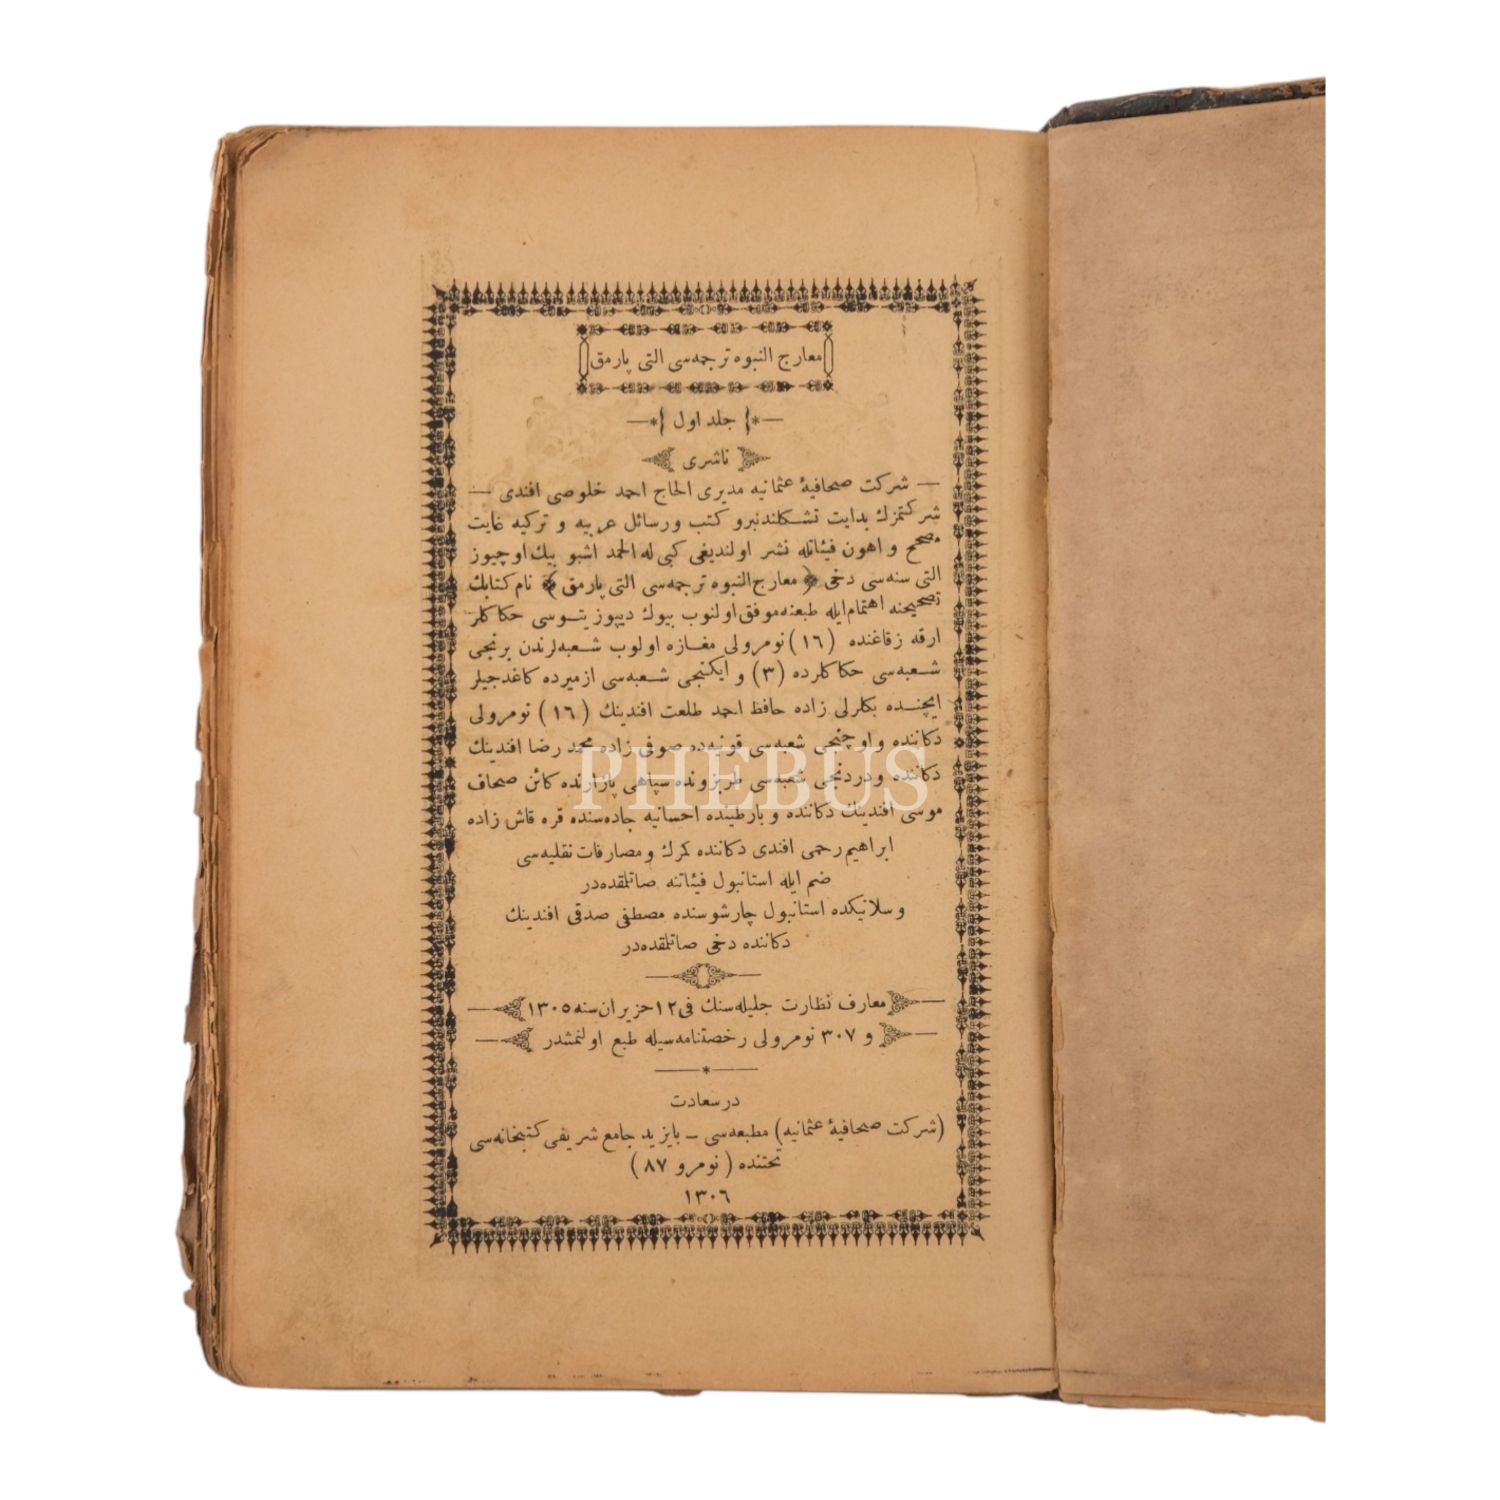 معارج النبوه ترجمه‌سی التی پارمق
جلد اول
ناشری
— شركت صحافیهٔ عثمانیه مدیری الحاج احمد خلوصی افندی —
شركتمزك بدایت تشكلندنبرو كتب ورسائل عربیه و تركیه غایت
مصحح و اهون فیئاتله نشر اولندیغی كبی له الحمد اشبو بیك اوچیوز
التی سنه‌سی دخی ﴿ معارج النبوه ترجمه‌سی التی پارمق ﴾ نام كتابك
تصحیحنه اهتمام ایله طبعنه موفق اولنوب بیوك دیپوزیتوسی حكاكلر
ارقه زقاغنده (١٦) نومرولی مغازه اولوب شعبه‌لرندن برنجی
شعبه‌سی حكاكلرده (٣) و ایكنجی شعبه‌سی ازمیرده كاغدجیلر
ایچنده بكلرلی زاده حافظ احمد طلعت افندینك (١٦) نومرولی
دكاننده و اوچنجی شعبه‌سی قونیه‌ده صوفی زاده محمد رضا افندینك
دكاننده ودردنجی شعبه‌سی طربزونده سپاهی پازارنده كائن صحاف
موسی افندینك دكاننده و بارطینده احسانیه جاده‌سنده قره قاش زاده
ابراهیم رحمی افندی دكاننده كمرك ومصارفات نقلیه‌سی
ضم ایله استانبول فیئاتنه صاتلمقده‌در
وسلانیكده استانبول چارشوسنده مصطفی صدقی افندینك
دكاننده دخی صاتلمقده‌در
معارف نظارت جلیله‌سنك فی ١٢ حزیران سنه ١٣٠٥
و ٣٠٧ نومرولی رخصتنامه‌سیله طبع اولنمشدر
درسعادت
(شركت صحافیهٔ عثمانیه) مطبعه‌سی – بایزید جامع شریفی كتبخانه‌سی
تحتنده (نومرو ٨٧)
١٣٠٦
PHEBUS